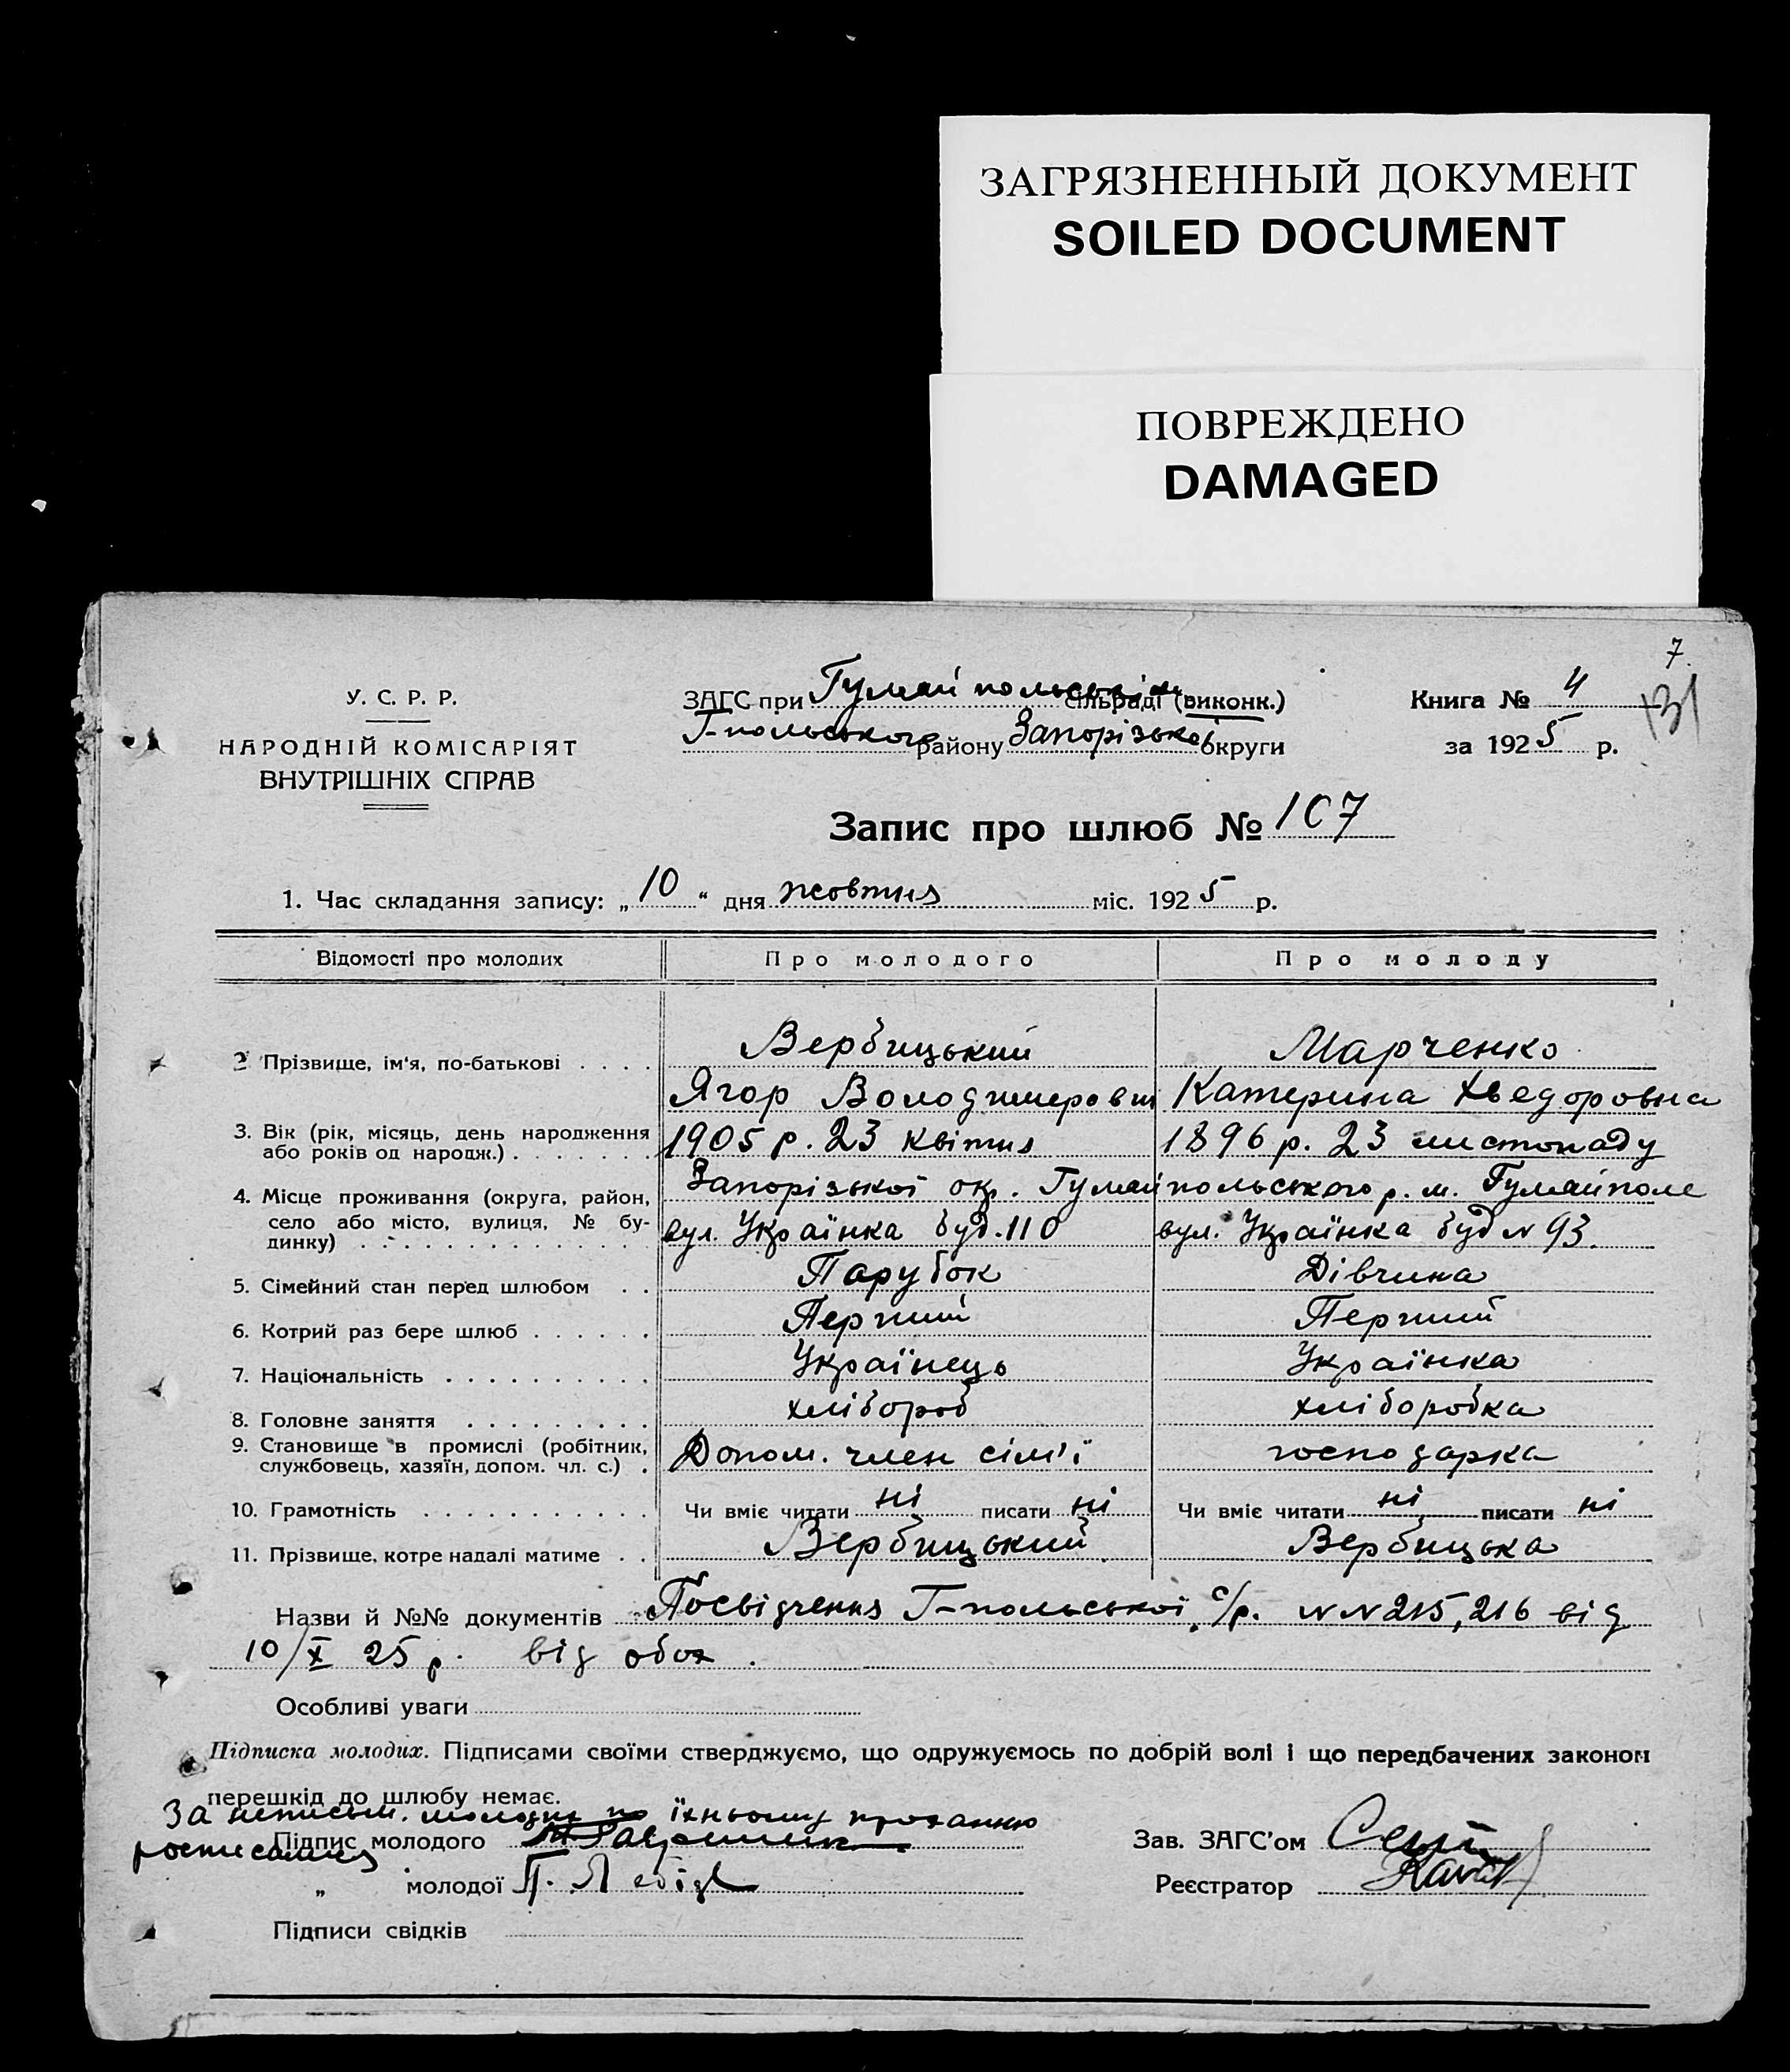 ЗАГРЯЗНЕННЫЙ ДОКУМЕНТ
SOILED DOCUMENT
ПОВРЕЖДЕНО
DAMAGED
7.
У. С. Р. Р.
НАРОДНІЙ КОМІСАРІЯТ
ВНУТРІШНІХ СПРАВ
ЗАГС при Гумайпольськім сільраді (виконк.)
Г-польського району Запорізької округи
Книга № 4
за 1925 р.
Запис про шлюб № 107
1. Час складання запису: „10“ дня жовтня міс. 1925 р.
Відомості про молодих Про молодого Про молоду
2 Прізвище, ім'я, по-батькові . . . . Вербицький Марченко
Ягор Володимерович Катерина Хведоровна
3. Вік (рік, місяць, день народження або років од народж.) . . . . . . . 1905 р. 23 квітня 1896 р. 23 листопаду
4. Місце проживання (округа, район, село або місто, вулиця, № будинку) Запорізької окр. Гумайпольського р. м. Гумайполе
вул. Українка буд. 110 вул. Українка буд N 93.
5. Сімейний стан перед шлюбом . . Парубок Дівчина
6. Котрий раз бере шлюб . . . . . . Перший Перший
7. Національність . . . . . . . . . . Українець Українка
8. Головне заняття . . . . . . . . . хлібороб хліборобка
9. Становище в промислі (робітник, службовець, хазяїн, допом. чл. с.) . Допом. член сім'ї господарка
10. Грамотність . . . . . . . . . . . Чи вміє читати ні писати ні Чи вміє читати ні писати ні
11. Прізвище, котре надалі матиме . . Вербицький Вербицька
Назви й №№ документів Посвідчення Г-польської с/р. NN 215, 216 від
10/X 25 р. від обох .
Особливі уваги
Підписка молодих. Підписами своїми стверджуємо, що одружуємось по добрій волі і що передбачених законом
перешкід до шлюбу немає.
За неписьм. молодих по їхньому проханню
росписались
Підпис молодого
„ молодої П. Лебідь
Підписи свідків
Зав. ЗАГС'ом
Реєстратор